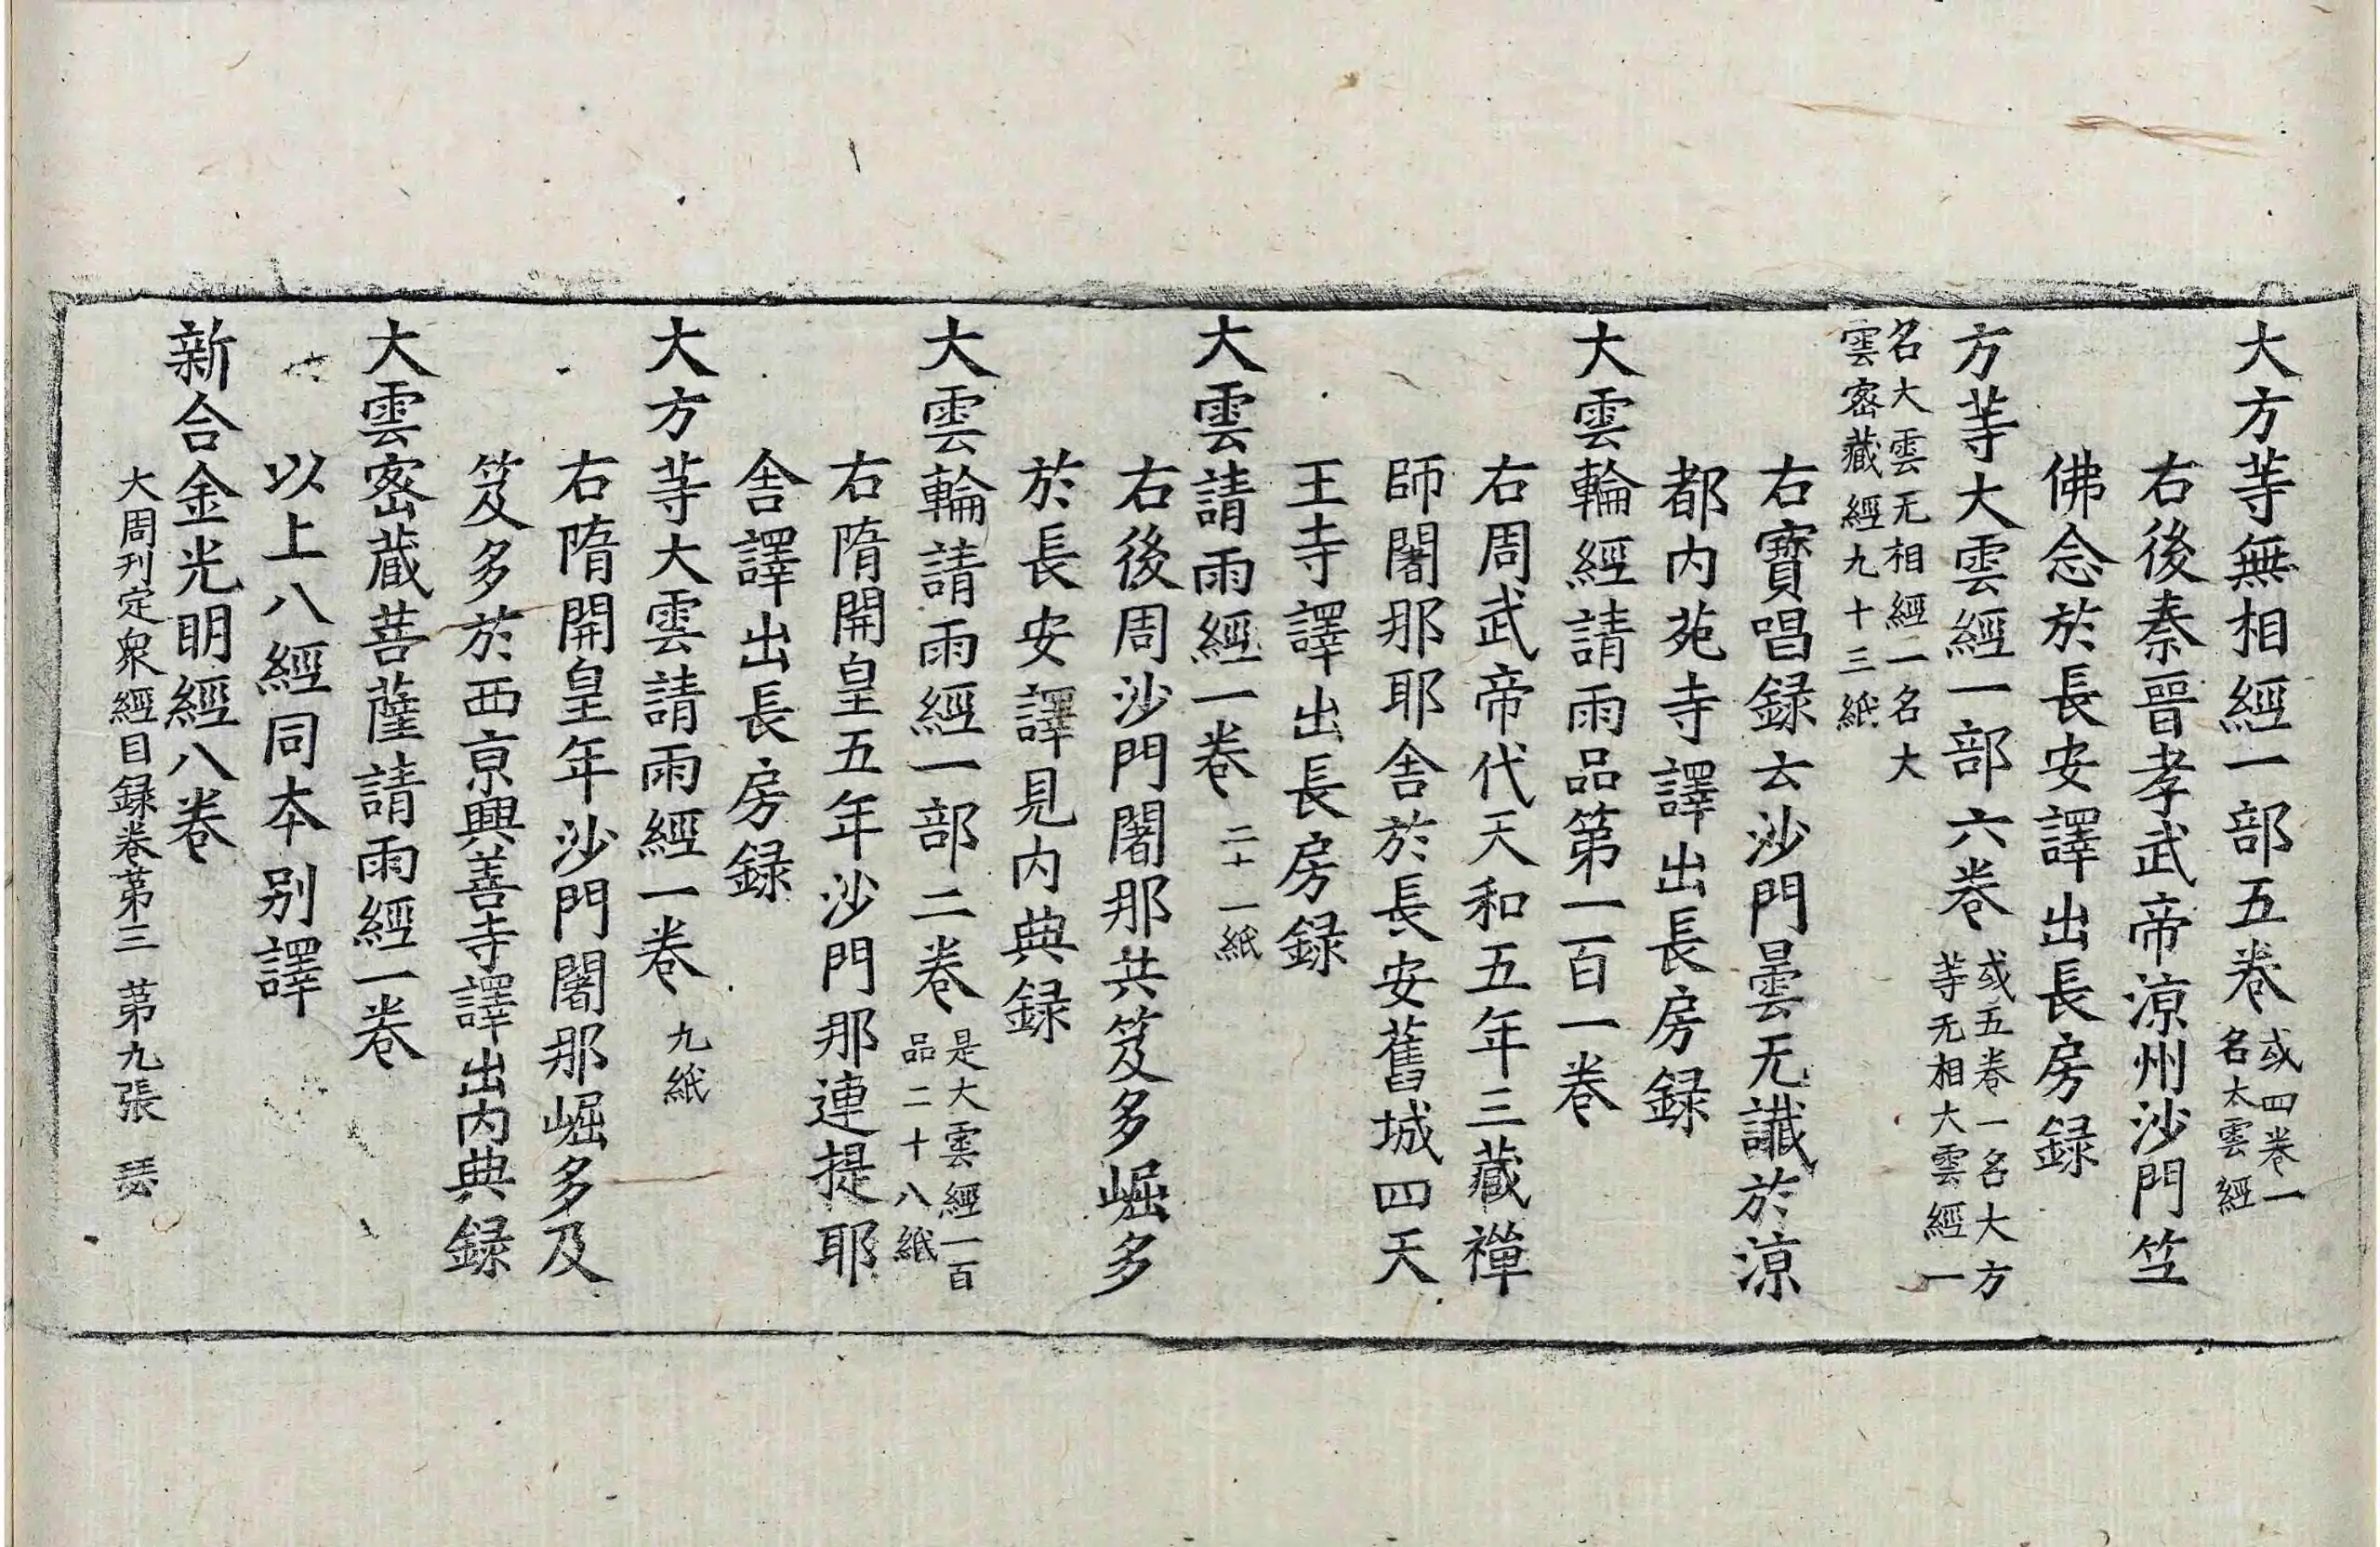 大方等無相經一部五卷 或四卷一名太雲經
右後秦晉孝武帝涼州沙門竺
佛念於長安譯出長房録
方等大雲經一部六卷 或五卷一名大方等无相大雲經一
名大雲无相經一名大雲密藏經九十三紙
右寶唱録云沙門曇无讖於涼
都内苑寺譯出長房録
大雲輪經請雨品第一百一卷
右周武帝代天和五年三藏禪
師闍那耶舍於長安舊城四天
王寺譯出長房録
大雲請雨經一卷 二十一紙
右後周沙門闍那共笈多崛多
於長安譯見内典録
大雲輪請雨經一部二卷 是大雲經一百品二十八紙
右隋開皇五年沙門那連提耶
舍譯出長房録
大方等大雲請雨經一卷 九紙
右隋開皇年沙門闍那崛多及
笈多於西京興善寺譯出内典録
大雲密蔵菩薩請雨經一卷
以上八經同本别譯
新合金光明經八卷
大周刊定衆經目録卷第三 第九張